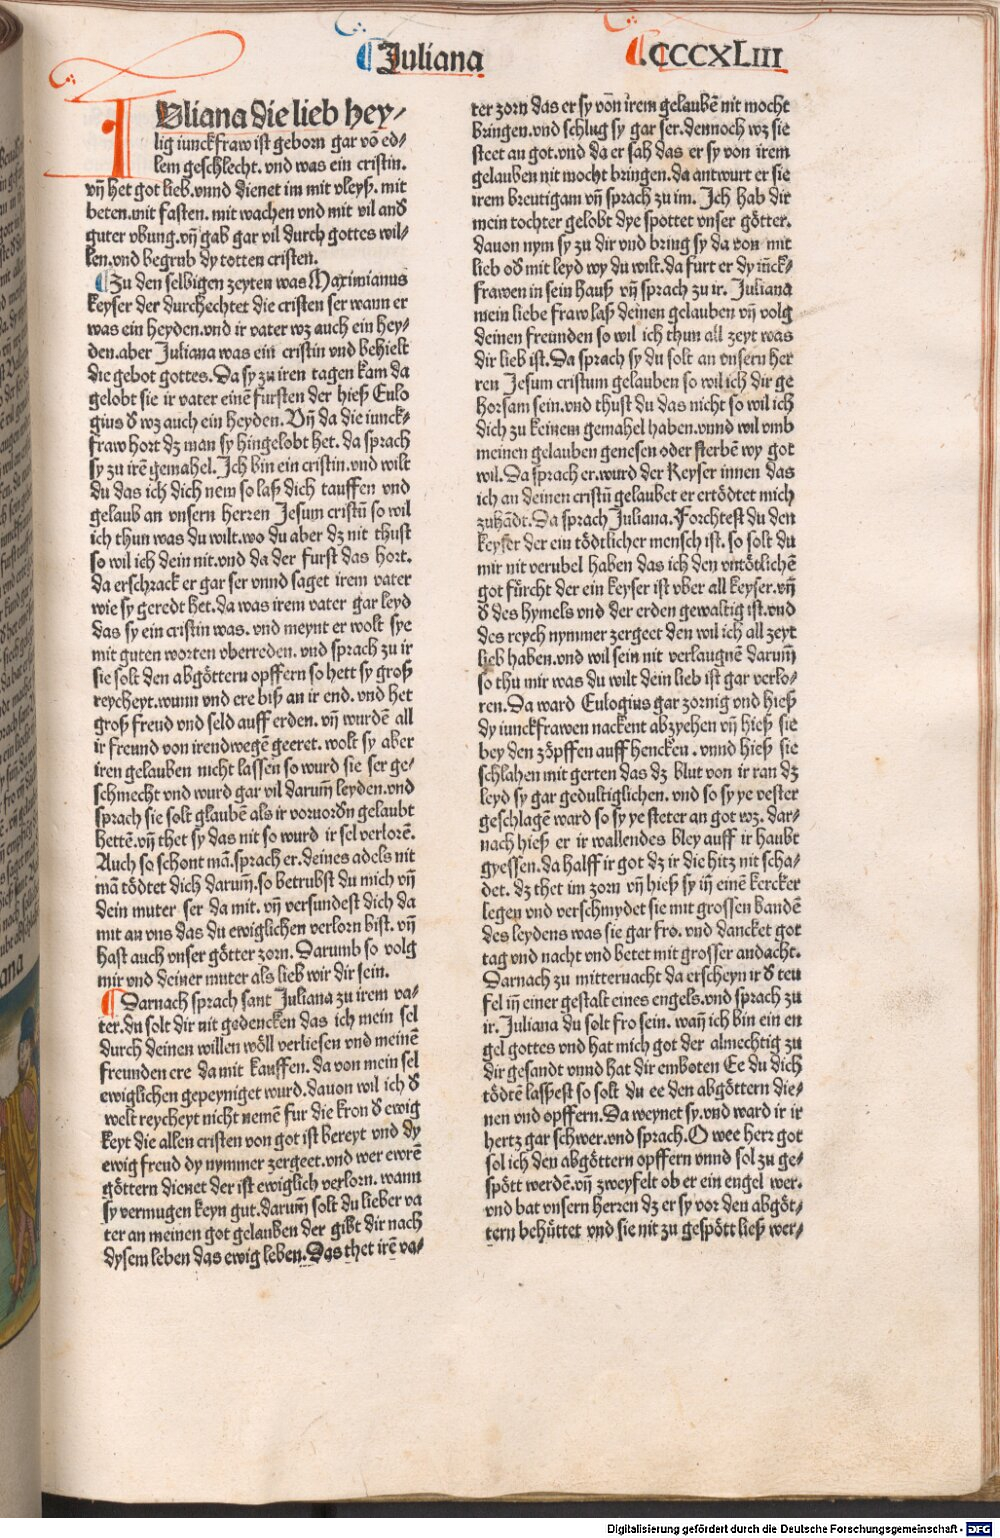 Juliana
.CCCXLIII
IUliana die lieb hey-
lig iunckfraw ist geborn gar võ ed-
lem geschlecht. vnd was ein cristin.
vñ het got lieb. vnnd dienet im mit vleyß. mit
beten. mit fasten. mit wachen vnd mit vil and
guter vbung. vñ gab gar vil durch gottes wil-
len. vnd begrub dy totten cristen.
Zu den selbigen zeyten was Maximianus
keyser der durchechtet die cristen ser wann er
was ein heyden. vnd ir vater wz auch ein hey-
den. aber Juliana was ein cristin vnd behielt
die gebot gottes. Da sy zu iren tagen kam da
gelobt sie ir vater einē fursten der hieß Eulo
gius d wz auch ein heyden. Vñ da die iunck-
fraw hort dz man sy hingelobt het. da sprach
sy zu irē gemahel. Ich bin ein cristin. vnd wilt
du das ich dich nem so laß dich tauffen vnd
gelaub an vnsern herren Jesum cristū so wil
ich thun was du wilt. wo du aber dz nit thust
so wil ich dein nit. vnd da der furst das hort.
da erschrack er gar ser vnnd saget irem vater
wie sy geredt het. da was irem vater gar leyd
das sy ein cristin was. vnd meynt er wolt sye
mit guten worten vberreden. vnd sprach zu ir
sie solt den abgöttern opffern so hett sy groß
reycheyt. wunn vnd ere biß an ir end. vnd het
groß freud vnd seld auff erden. vñ wurdē all
ir freund von irendwegē geeret. wolt sy aber
iren gelauben nicht lassen so wurd sie ser ge-
schmecht vnd wurd gar vil darum̄ leyden. vnd
sprach sie solt glaubē als ir voruordn gelaubt
hettē. vñ thet sy das nit so wurd ir sel verlorē.
Auch so schont mā. sprach er. deines adels nit
mā tödtet dich darum̄. so betrubst du mich vñ
dein muter ser da mit. vñ versundest dich da
mit an vns das du ewiglichen verlorn bist. vñ
hast auch vnser götter zorn. Darumb so volg
mir vnd deiner muter als lieb wir dir sein.
Darnach sprach sant Juliana zu irem va-
ter. du solt dir nit gedencken das ich mein sel
durch deinen willen wöll verliesen vnd meinē
freunden ere da mit kauffen. da von mein sel
ewiglichen gepeyniget wurd. dauon wil ich d
welt reycheyt nicht nemē fur die kron d ewig
keyt die allen cristen von got ist bereyt vnd dy
ewig freud dy nymmer zergeet. vnd wer ewrē
göttern dienet der ist ewiglich verlorn. wann
sy vermugen keyn gut. darum̄ solt du lieber va
ter an meinen got gelauben der gibt dir nach
dysem leben das ewig leben. Das thet irē va-
ter zorn das er sy von irem gelaubē nit mocht
bringen. vnd schlug sy gar ser. dennoch wz sie
steet an got. vnd da er sah das er sy von irem
gelauben nit mocht bringen. da antwurt er sie
irem breutigam vñ sprach zu im. Ich hab dir
mein tochter gelobt dye spottet vnser götter.
dauon nym sy zu dir vnd bring sy da von mit
lieb od mit leyd wy du wilt. da furt er dy iūck-
frawen in sein hauß vñ sprach zu ir. Juliana
mein liebe fraw laß deinen gelauben vñ volg
deinen freunden so wil ich thun all zeyt was
dir lieb ist. Da sprach sy du solt an vnsern her
ren Jesum cristum gelauben so wil ich dir ge
horsam sein. vnd thust du das nicht so wil ich
dich zu keinem gemahel haben. vnnd wil vmb
meinen gelauben genesen oder sterbē wy got
wil. Da sprach er. wurd der Keyser innen das
ich an deinen cristū gelaubet er ertödtet mich
zuhādt. Da sprach Juliana. Forchtest du den
keyser der ein tödtlicher mensch ist. so solt du
mir nit verubel haben das ich den vntötlichē
got fürcht der ein keyser ist vber all keyser. vñ
d des hymels vnd der erden gewaltig ist. vnd
des reych nymmer zergeet den wil ich all zeyt
lieb haben. vnd wil sein nit verlaugnē darum̄
so thu mir was du wilt dein lieb ist gar verlo-
ren. Da ward Eulogius gar zornig vnd hieß
dy iunckfrawen nackent abzyehen vñ hieß sie
bey den zöpffen auff hencken. vnnd hieß sie
schlahen mit gerten das dz blut von ir ran dz
leyd sy gar gedultiglichen. vnd so sy ye vester
geschlagē ward so sy ye steter an got wz. dar-
nach hieß er ir wallendes bley auff ir haubt
gyessen. da halff ir got dz ir die hitz nit scha-
det. dz thet im zorn vñ hieß sy in̄ einē kercker
legen vnd verschmydet sie mit grossen bandē
des leydens was sie gar fro. vnd dancket got
tag vnd nacht vnd betet mit grosser andacht.
Darnach zu mitternacht da erscheyn ir d teu
fel in̄ einer gestalt eines engels. vnd sprach zu
ir. Juliana du solt fro sein. wañ ich bin ein en
gel gottes vnd hat mich got der almechtig zu
dir gesandt vnnd hat dir emboten Ee du dich
tödtē lassest so solt du ee den abgöttern die-
nen vnd opffern. Da weynet sy. vnd ward ir ir
hertz gar schwer. vnd sprach. O wee herr got
sol ich den abgöttern opffern vnnd sol zu ge-
spött werdē. vñ zweyfelt ob er ein engel wer.
vnd bat vnsern herren dz er sy vor den abgöt-
tern behüttet vnd sie nit zu gespött ließ wer-
Digitalisierung gefördert durch die Deutsche Forschungsgemeinschaft - DFG